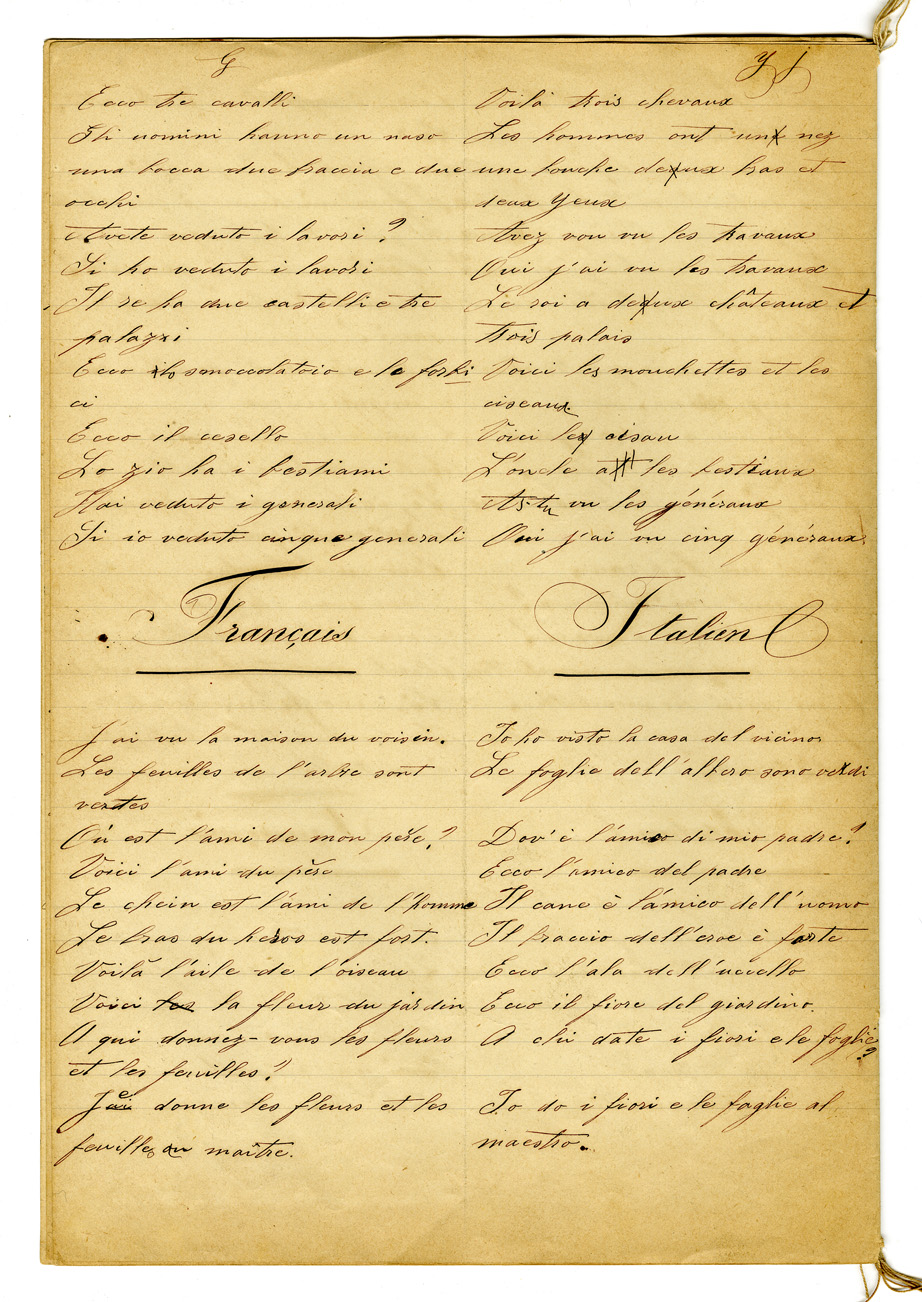 G
Ecco tre cavalli
Gli uomini hanno un naso
una bocca due braccia e due
occhi
Avete veduto i lavori ?
Si ho veduto i lavori
Il re ha due castelli e tre
palazzi
Ecco lo smoccolatoio e le forbi
ci
Ecco il cesello
Lo zio ha i bestiami
Hai veduto i generali
Si io veduto cinque generali
Voilà trois chevaux
Les hommes ont un nez
une bouche deux bras et
deux yeux
Avez vou vu les travaux
Oui j'ai vu les travaux
Le roi a deux châteaux et
trois palais
Voici les mouchettes et les
ciseaux.
Voici le cisau
L'oncle a les bestiaux
As-tu vu les généraux
Oui j'ai vu cinq généraux.
Français
Italien
J'ai vu la maison du voisin.
Les feuilles de l'arbre sont
vertes
Où est l'ami de mon père ?
Voici l'ami du père
Le chein est l'ami de l'homme
Le bras du heros est fort.
Voilà l'aile de l'oiseau
Voici les la fleur du jardin
A qui donnez-vous les fleurs
et les feuilles ?
Je donne les fleurs et les
feuilles au maître.
Io ho visto la casa del vicino
Le foglie dell'albero sono verdi
Dov'è l'amico di mio padre ?
Ecco l'amico del padre
Il cane è l'amico dell'uomo
Il braccio dell'eroe è forte
Ecco l'ala dell'uccello
Ecco il fiore del giardino.
A chi date i fiori e le foglie ?
Io do i fiori e le foglie al
maestro.